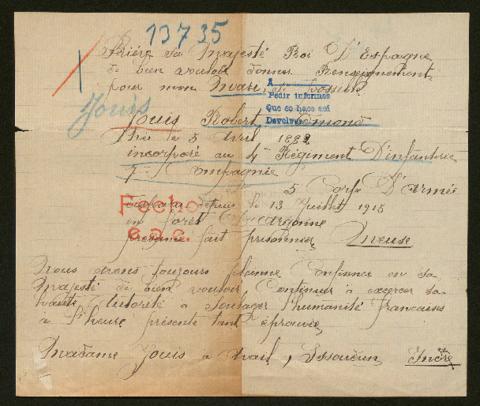 13735
Prière sa Majesté Roi D'Espagne
de bien vouloir donner Renseignement
pour mon Mari, si possible
A
Pedir informes
Que se hace así
Devolver
Jouis
Jouis Robert, Edmond
Né le 5 Avril 1882
incorporé au 4e Régiment D'infanterie
7e Compagnie
5 Corps D'armée
depuis le 13 Juillet 1915
en forêt Argonne
Fecho
présumé fait prisonnier Meuse
Nous avons toujours pleine Confiance en sa
Majesté de bien vouloir Continuer à exercer sa
haute Autorité à Soulager l'humanité Française
à l'heure présente tant éprouvée
Madame Jouis à Issoudun Indre